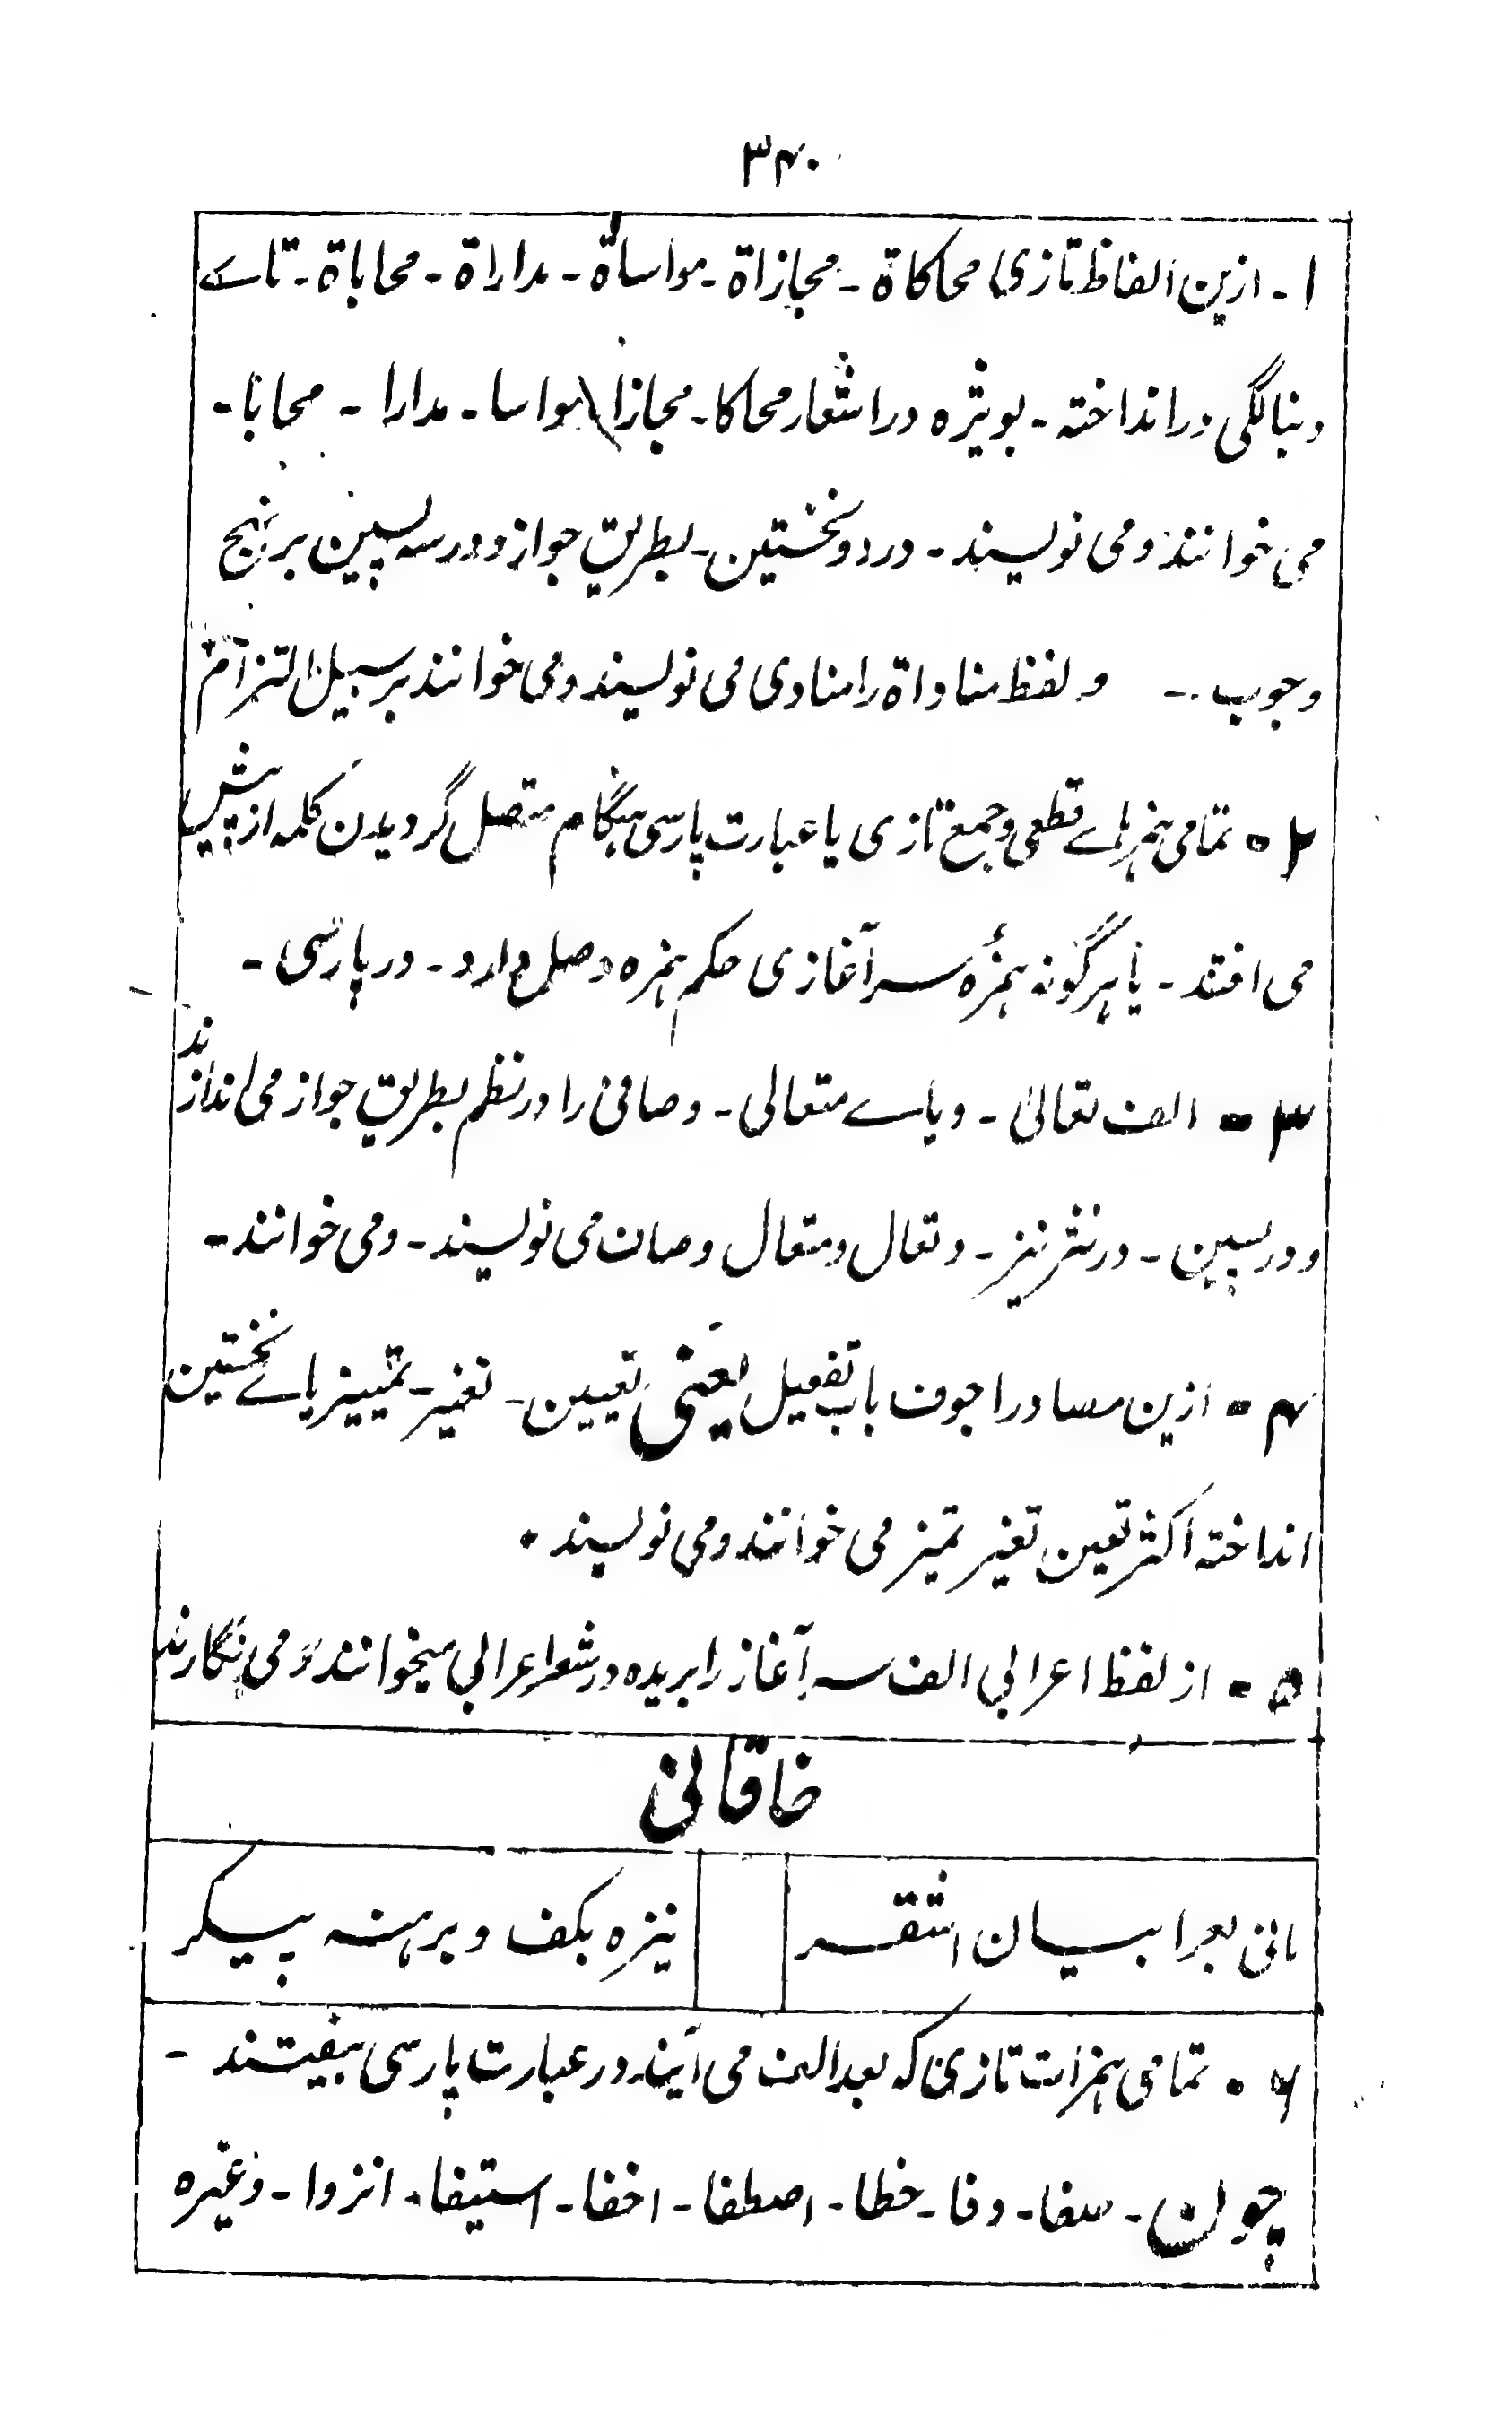 ۳۴۰
۱- ازین الفاظ تازی محاکاة - مجازاة - مواساة - مداراة - محاباة - تاے
دنبالگی در انداخته - بویژه در اشعار محاکا - مجازا مواسا - مدارا - محابا -
می خوانند و می نویسند - در دو نخستین - بطریق جواز و در سه پسین بر نهج
وجوب -- و لفظ مناواة را مناوی می نویسند و می خوانند بر سبیل التزام
۲- تمامی همزہاے قطعی و جمع تازی یا عبارت پارسی هنگام متصل گردیدن کلمه از پیش
می افتد - یا هرگونه همزۂ سر آغازی حکم همزه وصل دارد - در پارسی -
۳- الف تعالیٰ - و یاے متعالی - و صافی را در نظم بطریق جواز می اندازند
و در پسین - در نثر نیز - و تعال و متعال و صاف می نویسند - و می خوانند -
۴- ازین مصادر اجوف باب تفعیل یعنی تعیین - تغییر - تمییز یاے نخستین
انداخته اکثر تعین تغیر تمیز می خوانند و می نویسند .
۵- از لفظ اعرابی الف سر آغاز را بریده در شعر اعرابی میخوانند و می نگارند
خاقانی
مانی بعرابیان اشقر نیزه بکف و برهنه پیکر
۶- تمامی همزات تازی که بعد الف می آیند در عبارت پارسی بیفتند -
چون - سفا - وفا - خطا - اصطفا - اخفا - استیفا - انزوا - وغیره